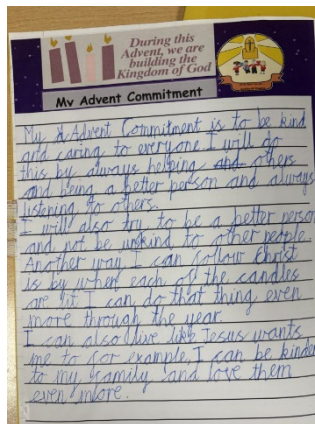 During this
Advent, we are
building the
Kingdom of God
My Advent Commitment
My Advent Commitment is to be kind
and caring to everyone. I will do
this by always helping others
and being a better person and always
listening to others.
I will also try to be a better person
and not be unkind to other people.
Another way I can follow Christ
is by when each of the candles
are lit I can do that thing even
more through the year.
I can also live like Jesus wants
me to for example, I can be kinder
to my family and love them
even more.